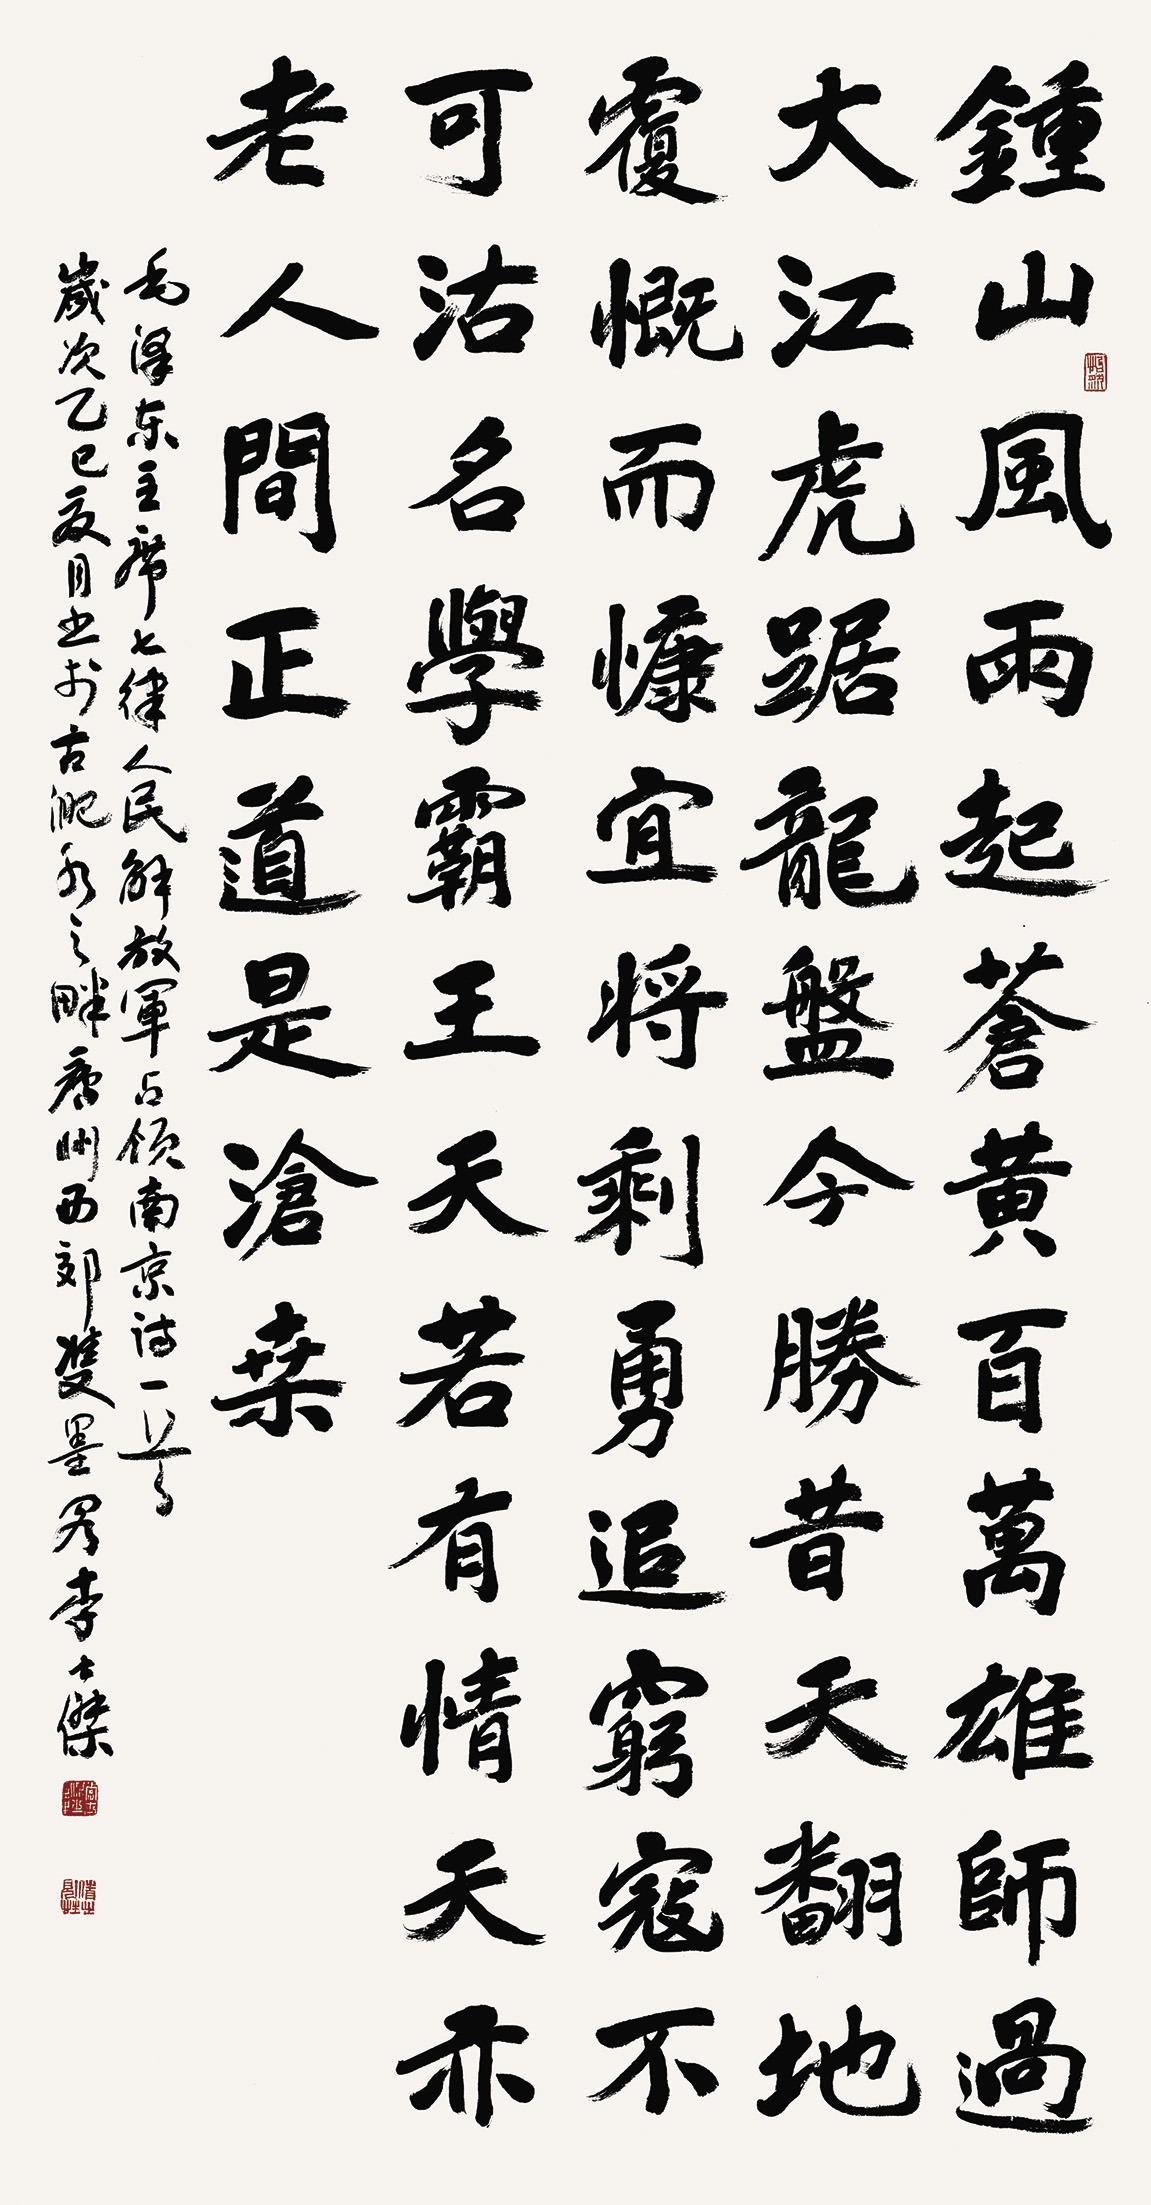 鍾山風雨起蒼黃百萬雄師過
大江虎踞龍盤今勝昔天翻地
覆慨而慷宜将剩勇追窮寇不
可沽名學霸王天若有情天亦
老人間正道是滄桒
毛澤东主席七律人民解放軍占领南京诗一首
嵗次乙巳夏月书於古淝水之畔廬州西郊雙墨居李士傑